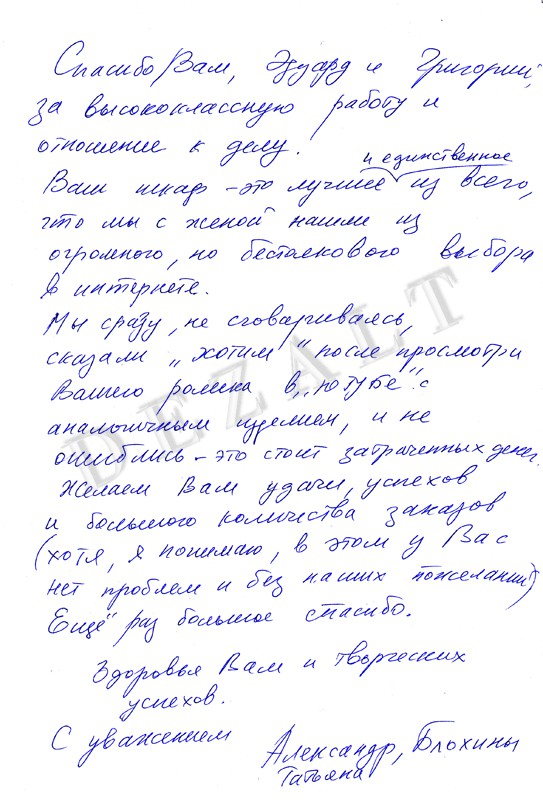 Спасибо Вам, Эдуард и Григорий,
за высококлассную работу и
отношение к делу.
и единственное
Ваш шкаф - это лучшее из всего,
что мы с женой нашли из
огромного, но бестолкового выбора
в интернете.
Мы сразу, не сговариваясь,
сказали „хотим" после просмотра
Вашего ролика в „ютубе" с
аналогичным изделием, и не
ошиблись - это стоит затраченных денег.
Желаем Вам удачи, успехов
и большого количества заказов
(хотя, я понимаю, в этом у Вас
нет проблем и без наших пожеланий)
Ещё раз большое спасибо.
Здоровья Вам и творческих
успехов.
С уважением
Александр, Блохины
Татьяна
DEZALT